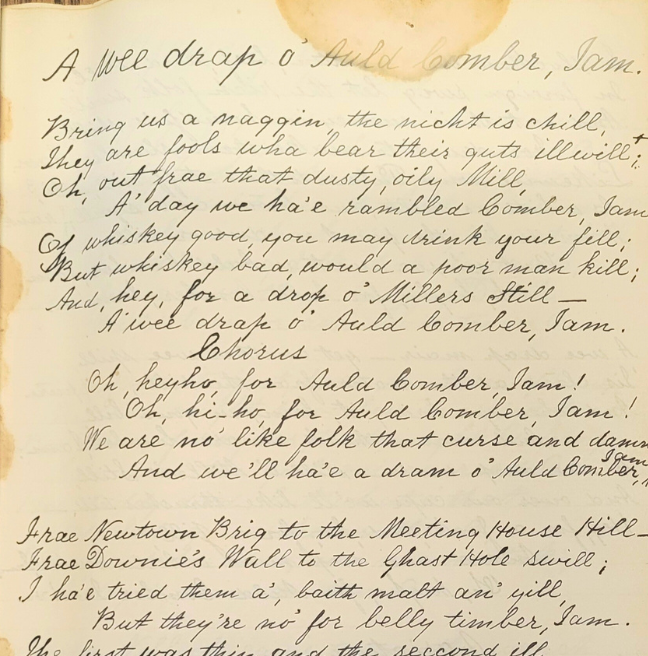 A wee drap o' Auld Comber, Tam.
Bring us a naggin, the nicht is chill,
They are fools wha bear their guts illwill;
Oh, out frae that dusty, oily Mill,
A' day we ha'e rambled Comber, Tam
Of whiskey good, you may drink your fill;
But whiskey bad, would a poor man kill;
And, hey, for a drop o' Millers Still —
A wee drap o' Auld Comber, Tam.
Chorus
Oh, heyho, for Auld Comber, Tam!
Oh, hi-ho, for Auld Comber, Tam!
We are no' like folk that curse and damn
And we'll ha'e a dram o' Auld Comber, Tam
Frae Newtown Brig to the Meeting House Hill —
Frae Downie's Wall to the Ghast Hole swill;
I ha'e tried them a', baith malt an' yill,
But they're no' for belly timber, Tam.
The first was thin and the seccond ill